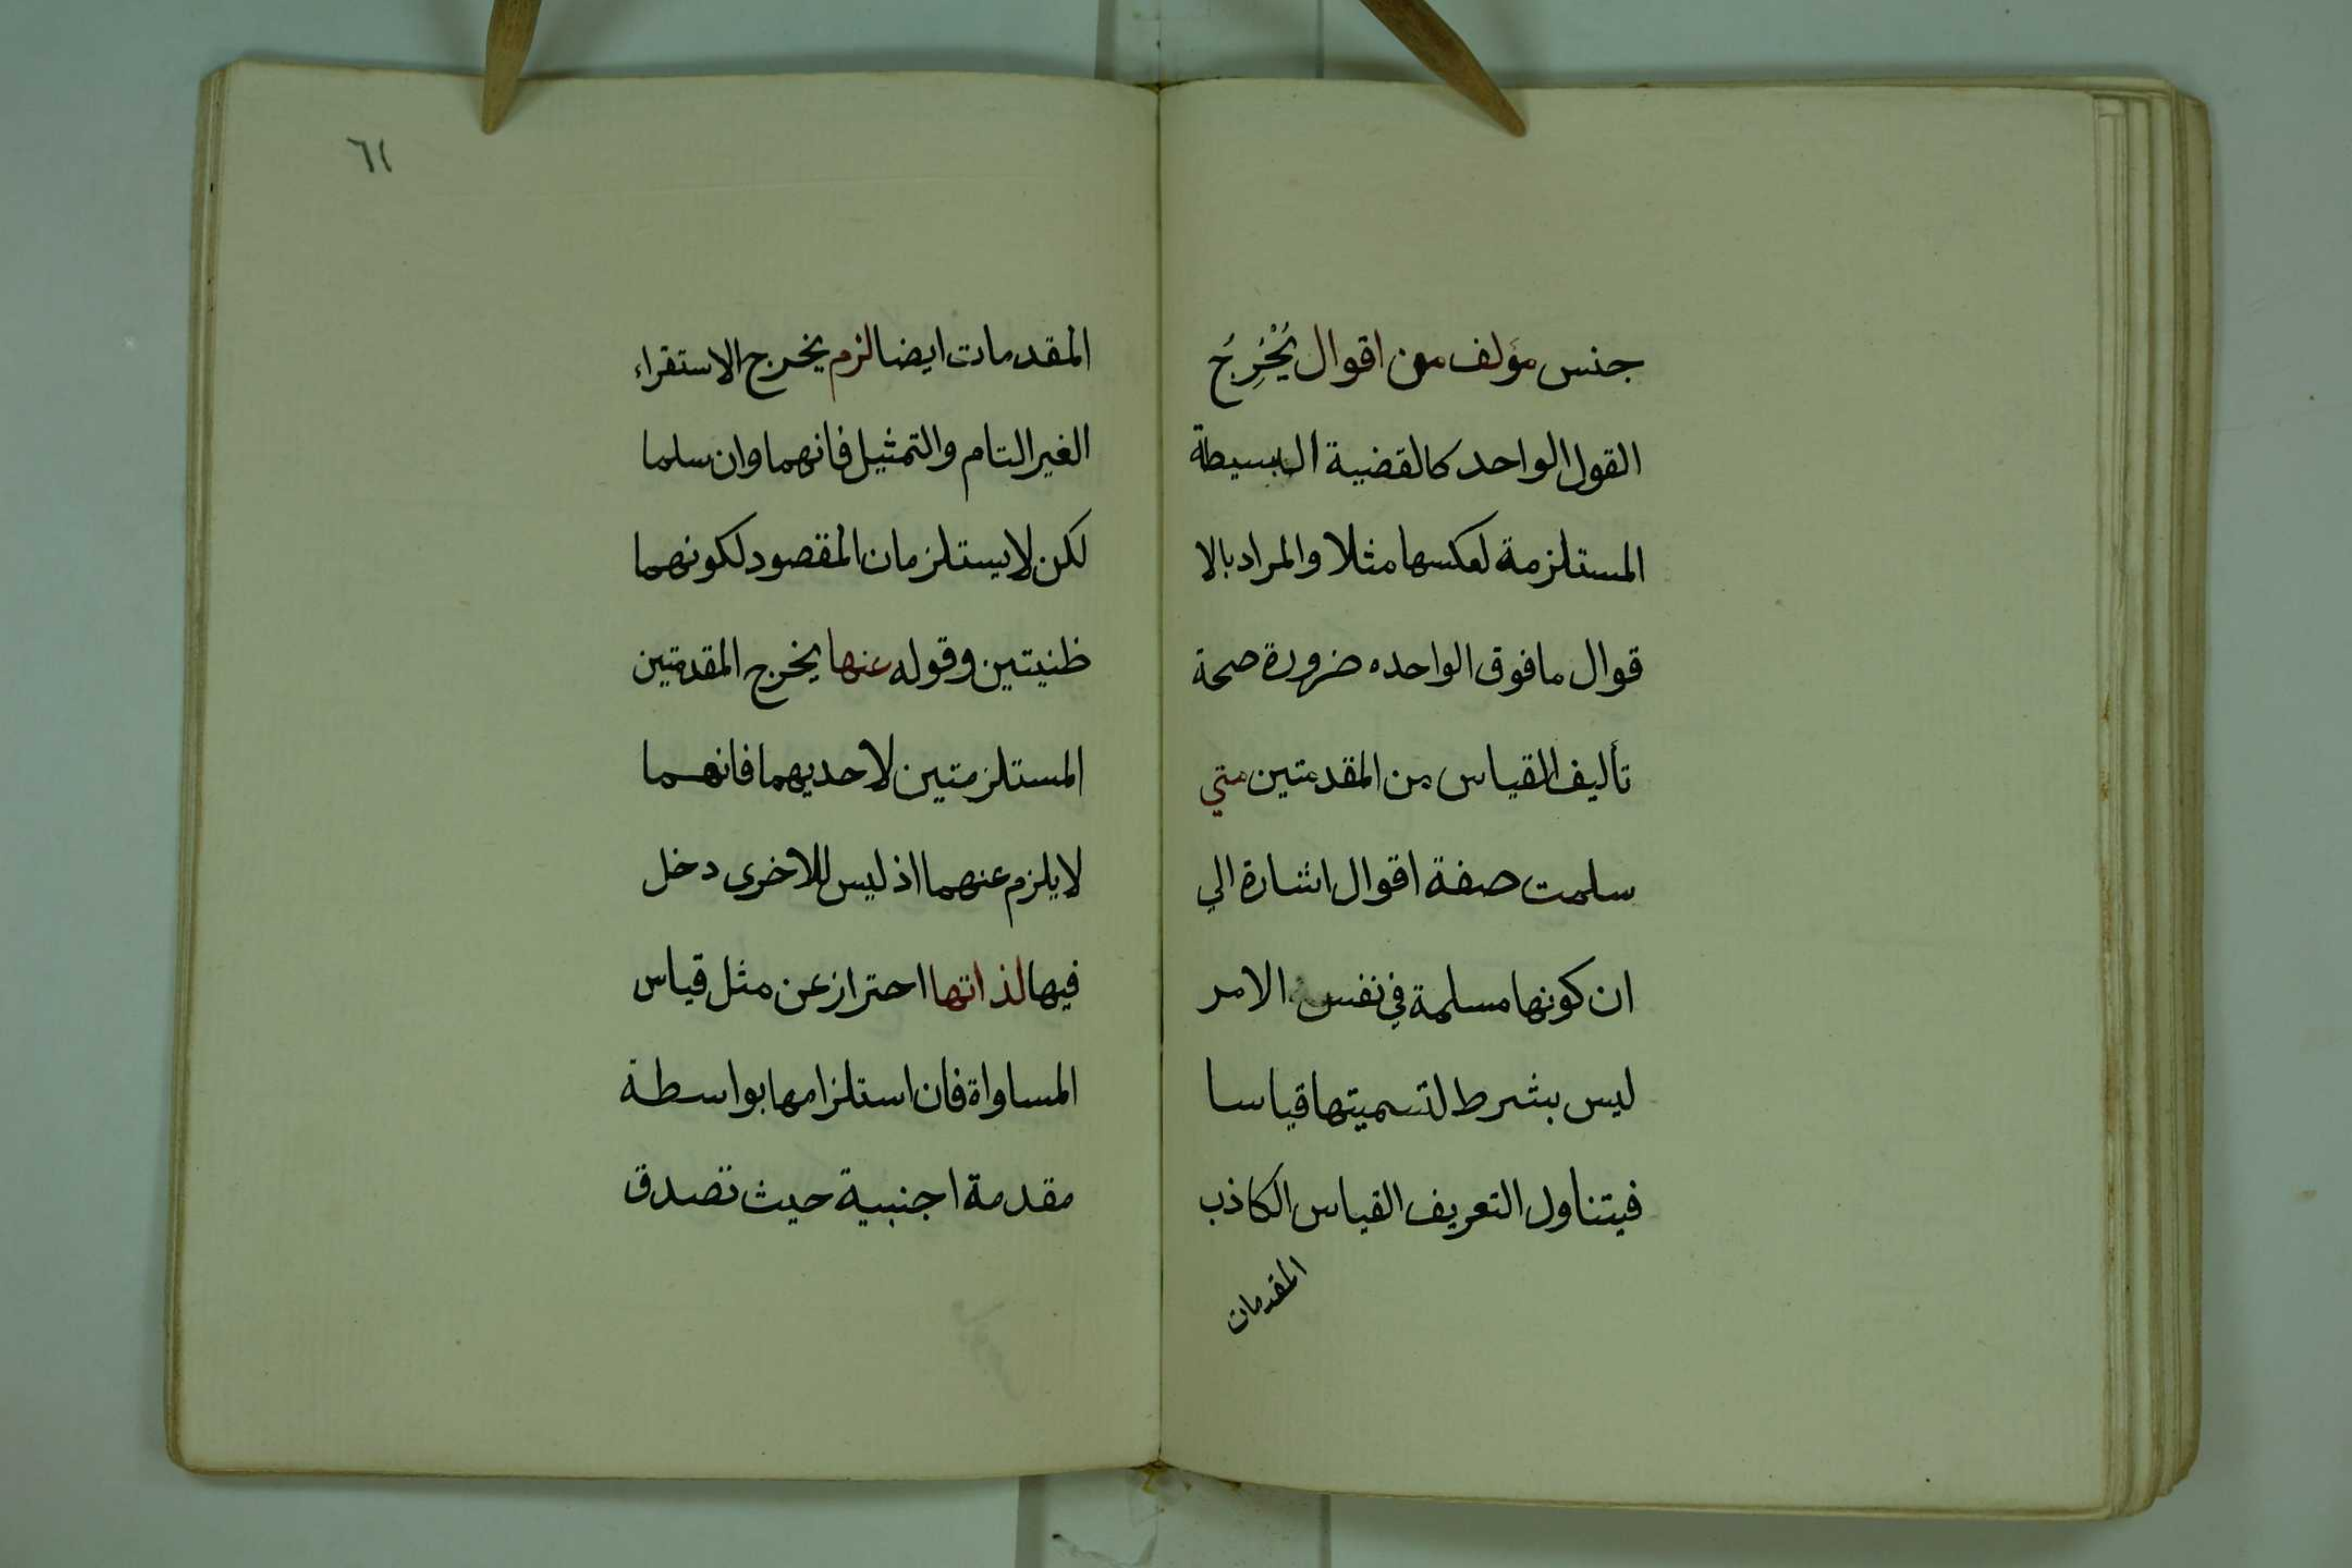 جنس مؤلف من اقوال يُخْرِجُ
القول الواحد كالقضية البسيطة
المستلزمة لعكسها مثلا والمراد بالا
قوال ما فوق الواحده ضرورة صحة
تأليف القياس من المقدمتين متي
سلمت صفة اقوال اشارة الي
ان كونها مسلمة في نفس الامر
ليس بشرط لتسميتها قياسا
فيتناول التعريف القياس الكاذب
المقدمات
٦١
المقدمات ايضا لزم يخرج الاستقراء
الغير التام والتمثيل فانهما وان سلما
لكن لا يستلزمان المقصود لكونهما
ظنيتين وقوله عنها يخرج المقدمتين
المستلزمتين لاحديهما فانهما
لا يلزم عنهما اذ ليس للاخرى دخل
فيها لذاتها احتراز عن مثل قياس
المساواة فان استلزامها بواسطة
مقدمة اجنبية حيث تصدق